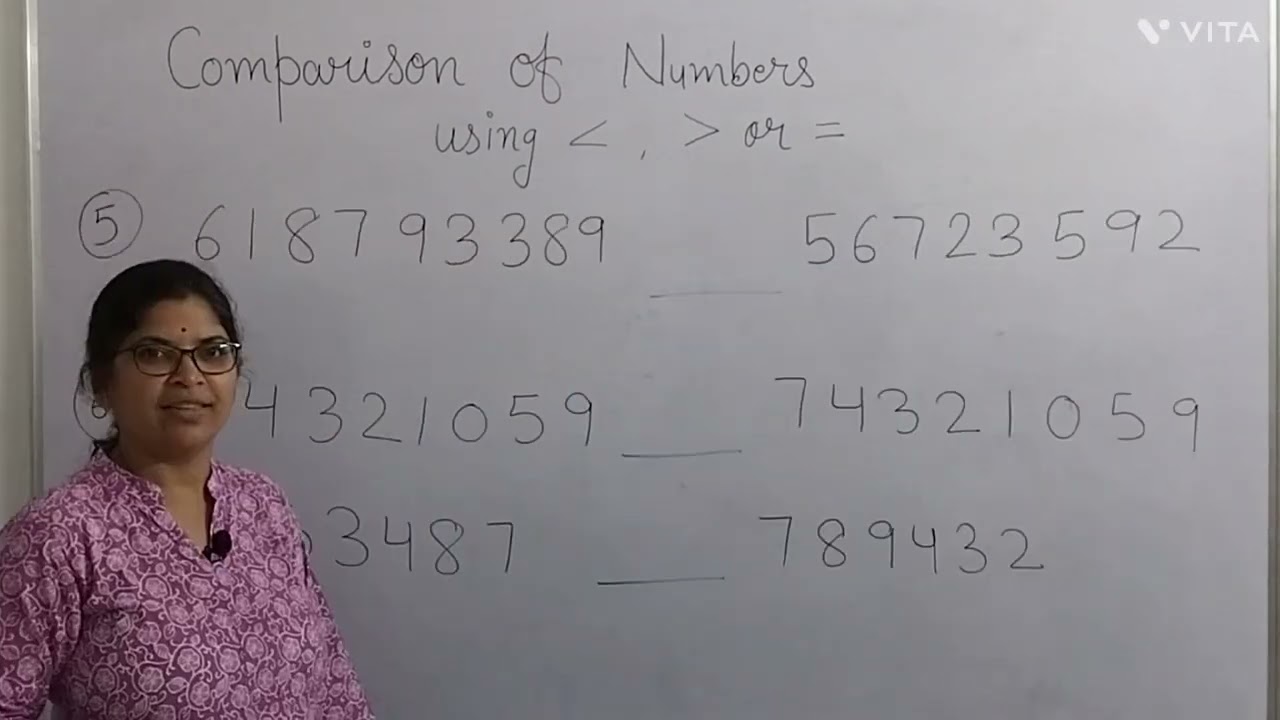 VITA
Comparison of Numbers
using < , > or =
5 618793389 ____ 56723592
4321059 ____ 74321059
3487 ____ 789432